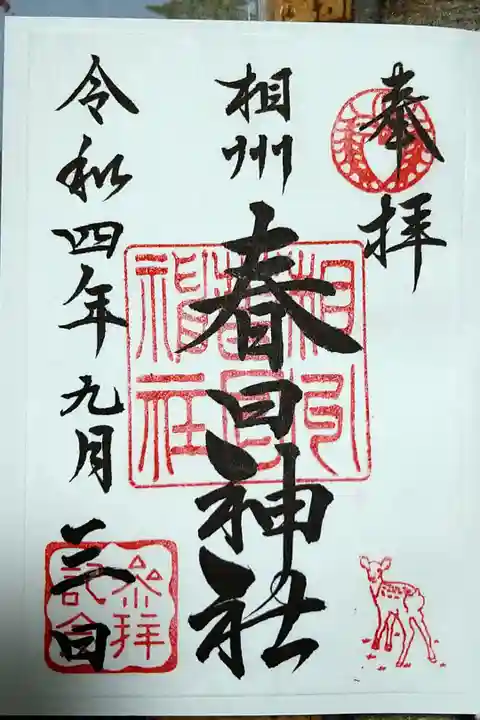 奉拝
相州
春日神社
相州
春日
神社
令和四年九月三日
参拝
記念